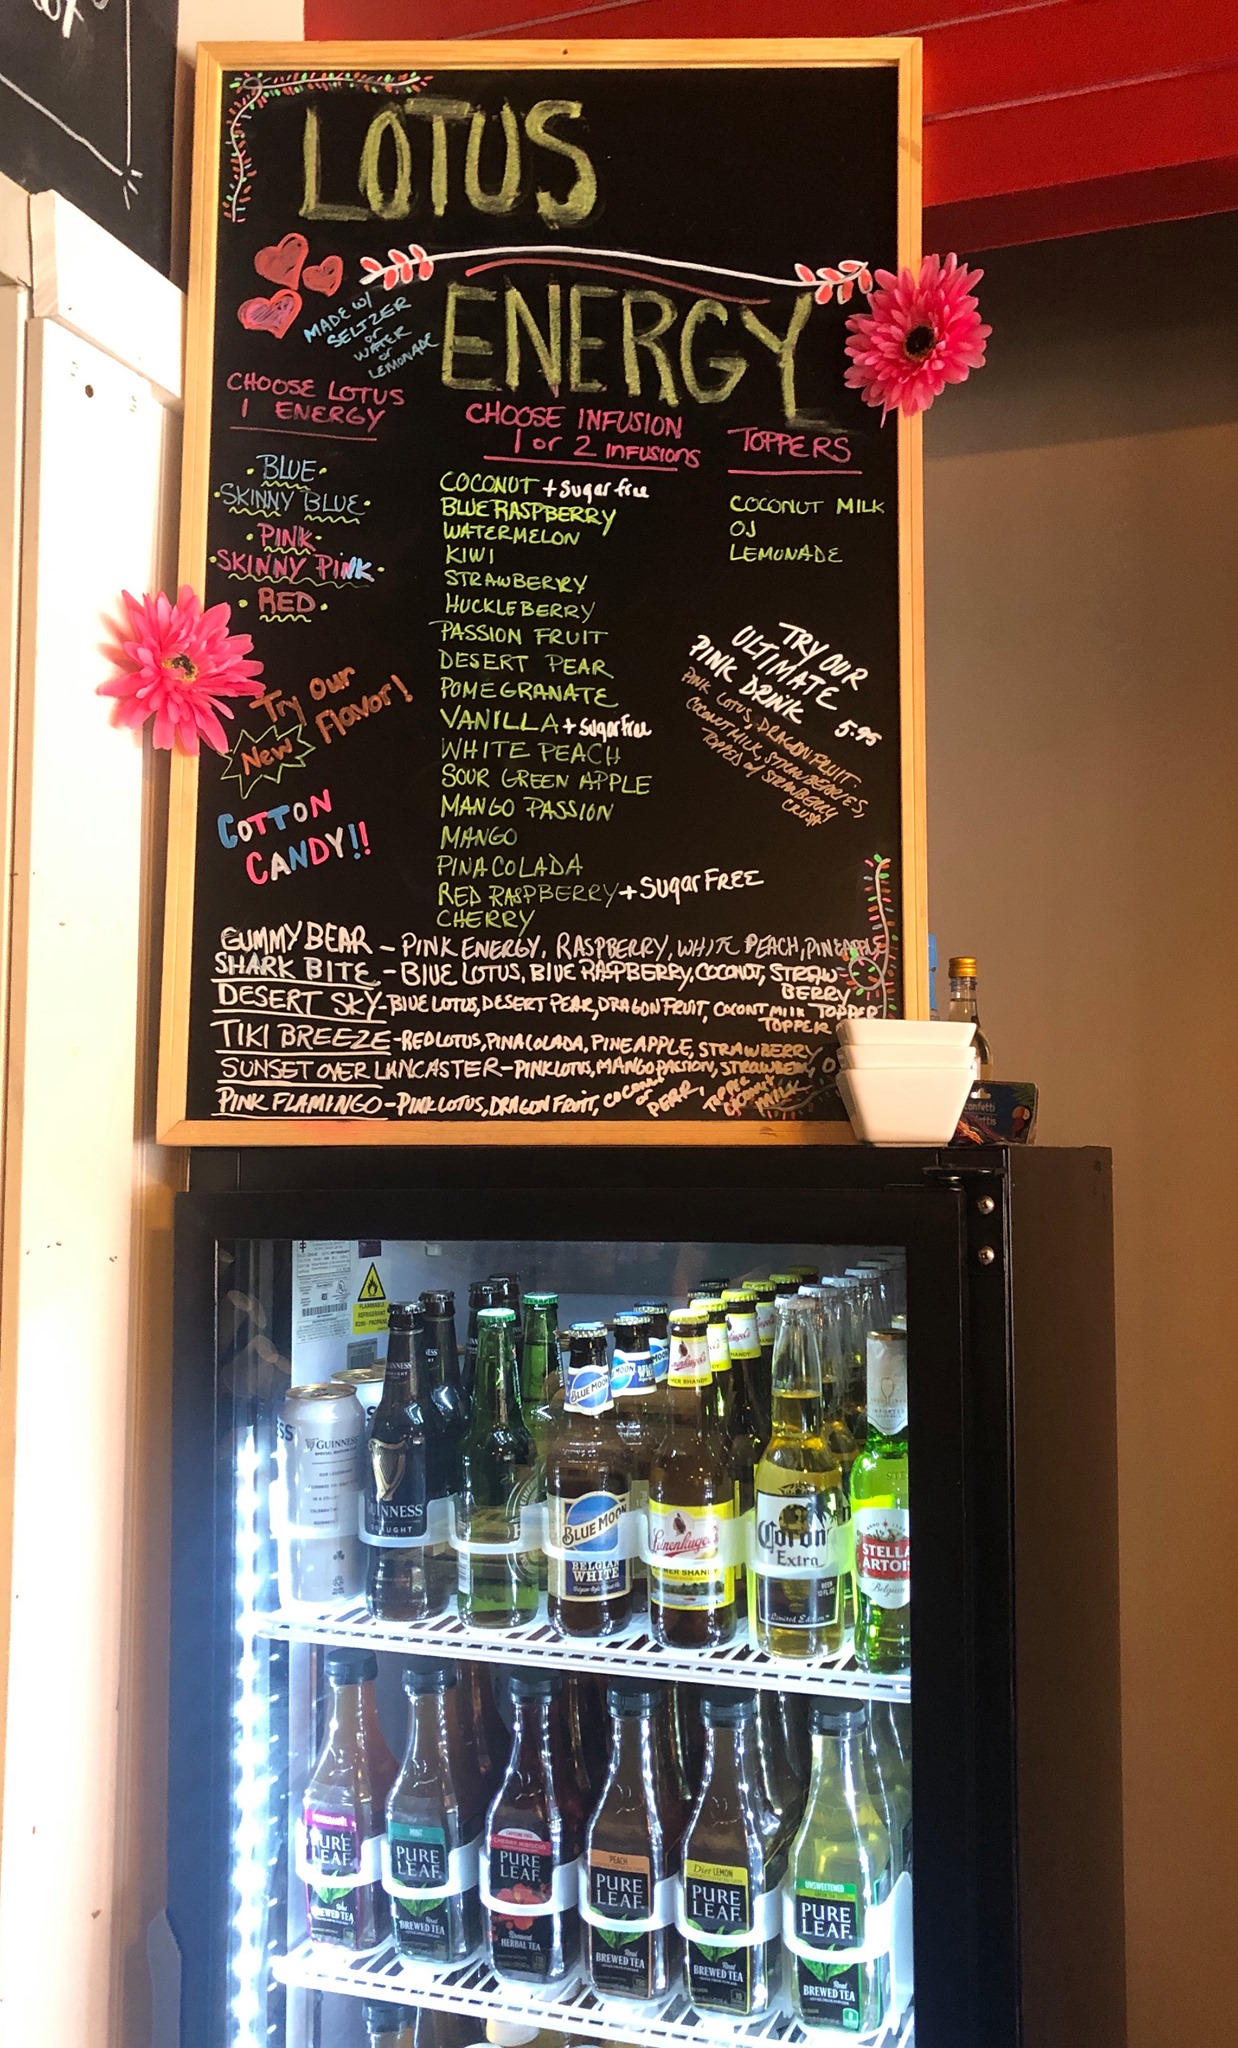 LOTUS
ENERGY
MADE W/
SELTZER
or
WATER
or
LEMONADE
CHOOSE LOTUS
1 ENERGY
BLUE
SKINNY BLUE
PINK
SKINNY PINK
RED
Try Our
New Flavor!
COTTON
CANDY!!
CHOOSE INFUSION
1 or 2 INFUSIONS
COCONUT + Sugar free
BLUE RASPBERRY
WATERMELON
KIWI
STRAWBERRY
HUCKLEBERRY
PASSION FRUIT
DESERT PEAR
POMEGRANATE
VANILLA + Sugar Free
WHITE PEACH
SOUR GREEN APPLE
MANGO PASSION
MANGO
PINA COLADA
RED RASPBERRY + SUGAR FREE
CHERRY
TOPPERS
COCONUT MILK
OJ
LEMONADE
TRY OUR
ULTIMATE
PINK DRINK 5.95
PINK LOTUS, DRAGON FRUIT
COCONUT MILK, STRAWBERRIES,
TOPPED w/ STRAWBERRY
CRUSH
GUMMY BEAR - PINK ENERGY, RASPBERRY, WHITE PEACH, PINEAPPLE
SHARK BITE - BLUE LOTUS, BLUE RASPBERRY, COCONUT, STRAW
BERRY
DESERT SKY - BLUE LOTUS, DESERT PEAR, DRAGON FRUIT, COCONT MILK TOPPER
TOPPER
TIKI BREEZE - RED LOTUS, PINA COLADA, PINEAPPLE, STRAWBERRY
SUNSET OVER LANCASTER - PINK LOTUS, MANGO PASSION, STRAWBERRY,
PINK FLAMINGO - PINK LOTUS, DRAGON FRUIT, COCONUT
OF PERR, TOPPER COCONUT MILK
confetti
FLAMMABLE
GUINNESS
GUINNESS
DRAUGHT
BLUE MOON
BLUE MOON
BELGIAN
WHITE
Leinenkugel's
SUMMER SHANDY
Corona
Extra
Limited Edition
STELLA
ARTOIS
Belgium
POMEGRANATE
PURE
LEAF
Real
BREWED TEA
MINT
PURE
LEAF
Real
BREWED TEA
CHERRY HIBISCUS
PURE
LEAF
HERBAL TEA
PEACH
PURE
LEAF
Real
BREWED TEA
Diet LEMON
PURE
LEAF
Real
BREWED TEA
UNSWEETENED
GREEN TEA
PURE
LEAF
Real
BREWED TEA